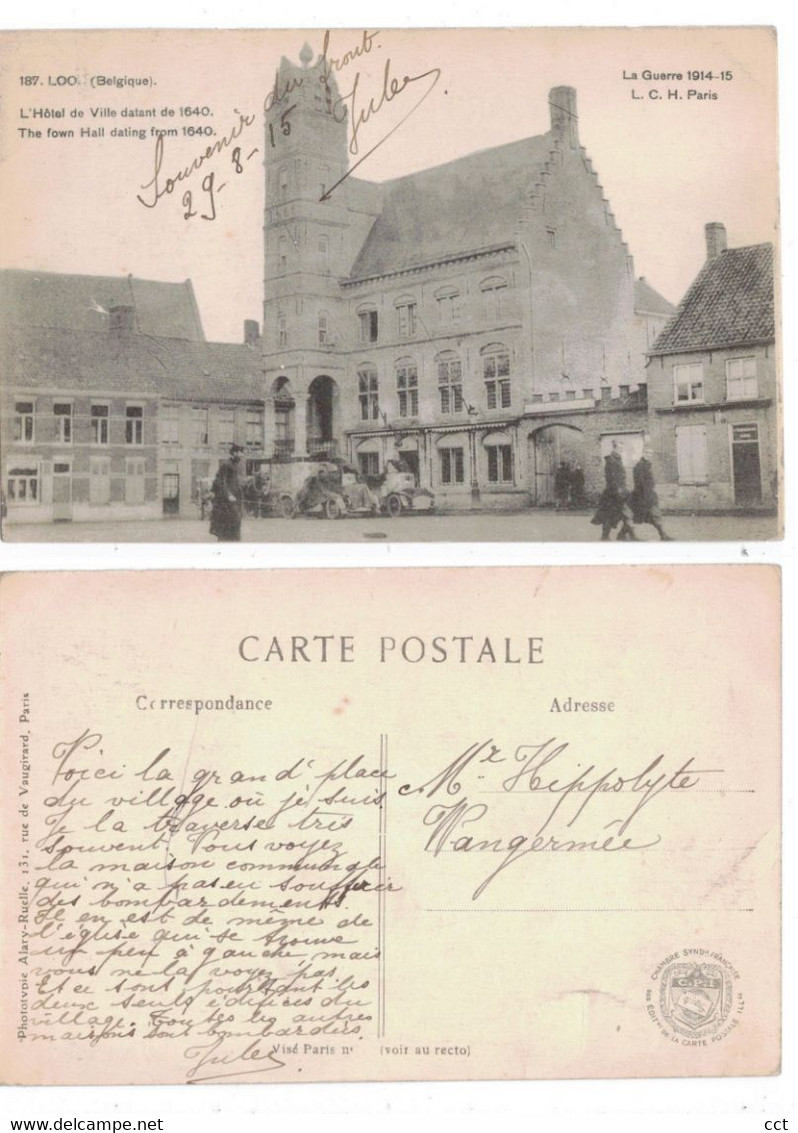 187. LOO. (Belgique).
L'Hôtel de Ville datant de 1640.
The fown Hall dating from 1640.
La Guerre 1914-15
L. C. H. Paris
Souvenir du front.
29-8-15
Jules
CARTE POSTALE
Correspondance
Adresse
Voici la grand' place
du village où je suis.
Je la traverse très
souvent. Vous voyez
la maison communale
qui n'a pas eu souffrir
des bombardements.
Il en est de même de
l'église qui se trouve
un peu à gauche mais
vous ne la voyez pas.
Et ce sont pourtant les
deux seuls édifices du
village. Toutes les autres
maisons sont bombardées.
Jules
Mr. Hippolyte
Vangermée
Phototypie Alary-Ruelle, 131, rue de Vaugirard, Paris
Visé Paris n° (voir au recto)
CHAMBRE SYNDle FRANÇAISE
DES ÉDITrs DE LA CARTE POSTALE ILLée
cct